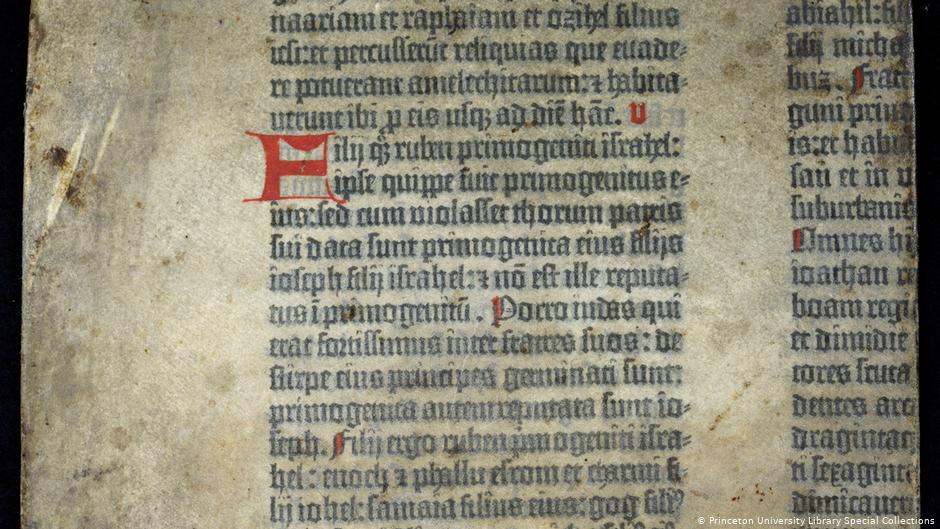 naariam et raphaiam et ozihel filios
iesi: et percusserūt reliquias que euade-
re potuerant amelechitarum: ⁊ habita-
uerunt ibi ꝓ eis usqꝫ ad diē hāc. V
Filij qꝫ ruben primogeniti israhel:
ipse quippe fuit primogenitus e-
ius: sed cum violasset thorum patris
sui data sunt primogenita eius filijs
ioseph filij israhel: ⁊ nō est ille reputa-
tus ī primogenitū. Porro iudas qui
erat fortissimus inter fratres suos: de
stirpe eius principes germinati sunt:
primogenita autem reputata sunt io-
seph. Filij ergo ruben primogeniti isra-
hel: enoch ⁊ phallu esrom et charmi fi-
lij iohel: samaia filius eius: gog filiꝰ
abiahil: fili
filij micha
buz. Fratr
guni princ
is: et habi
san et in v
suburbanis
Omnes hi
ioathan re
boam regi
et dimidie
tores scuta
dentes arc
draginta
ti sexaginta
dimicauer
© Princeton University Library Special Collections